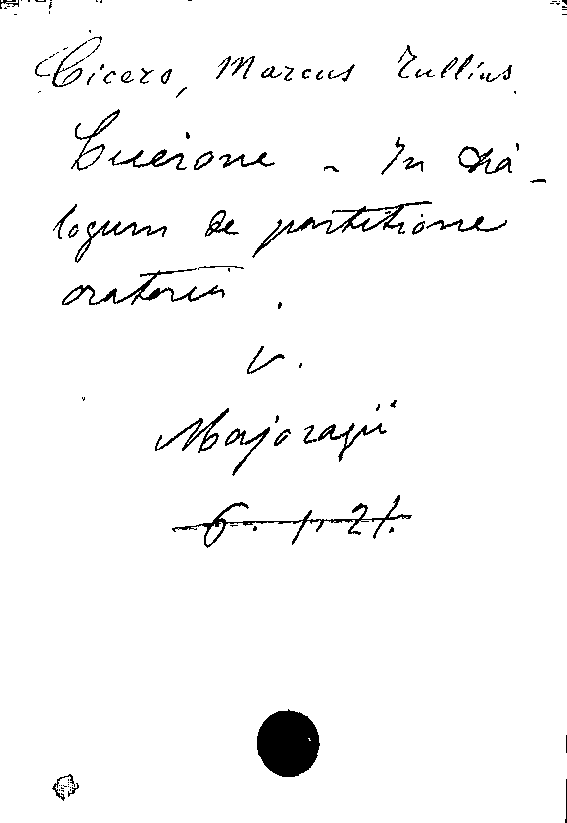 Cicero, Marcus Tullius
Cicerone - In dia-
logum de partitione
oratoria.
V.
Majoragii
6. 1. 21.